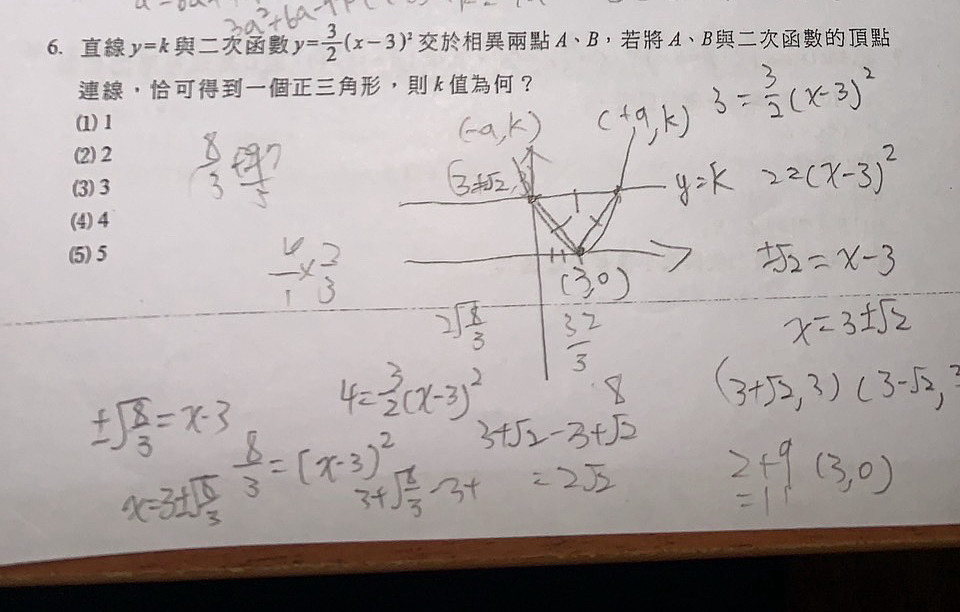 3a²+6a
6. 直線 y=k 與二次函數 y=3/2(x−3)² 交於相異兩點 A、B，若將 A、B與二次函數的頂點
連線，恰可得到一個正三角形，則 k 值為何？
(1) 1
(2) 2
(3) 3
(4) 4
(5) 5
(-a,k) (+a,k) 3=3/2(x-3)²
8/3
(3±√2,3)
y=k 2=(x-3)²
4/1×2/3
(3,0) ±√2=x-3
2√8/3 32/3 x=3±√2
±√8/3=x-3 4=3/2(x-3)² 8 (3+√2,3) (3-√2,
8/3=(x-3)² 3+√2-3+√2
x=3±√8/3 3+√8/3-3+ =2√2 2+9 (3,0)
=11